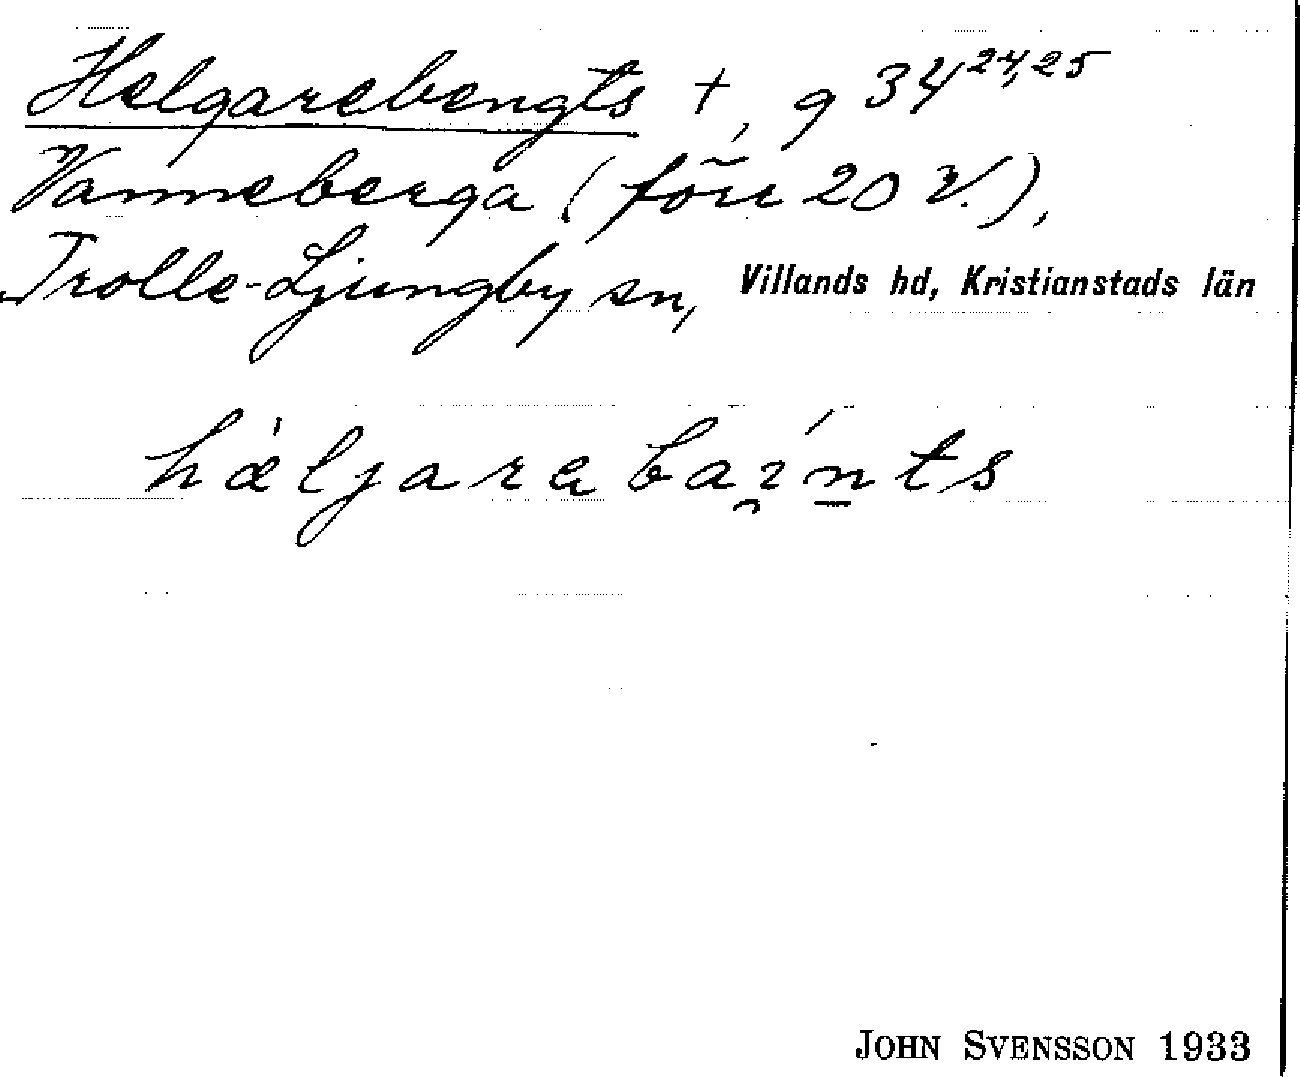 Helgarebengts +, g 34 24,25
Vanneberga (förr 20 V.),
Trolle-Ljungby sn, Villands hd, Kristianstads län
hæ̀ljarebai̯ńts
JOHN SVENSSON 1933